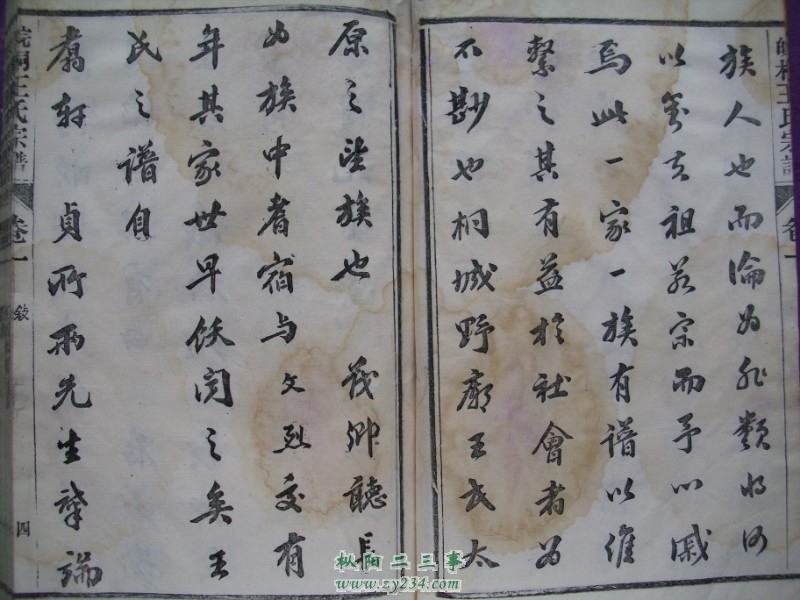 皖桐王氏宗譜
卷一
族人也而淪為非類將何
以對其祖若宗而予以感
焉此一家一族有譜以維
繫之其有益於社會者為
不尠也桐城野廟王氏太
原之望族也 茂卿聽長
如族中耆宿与文烈交有
年其家世早飫闻之矣王
氏之譜自
騫軒貞所兩先生肇端
皖桐王氏宗譜
卷一
敘
四
枞阳二三事
www.zy234.com